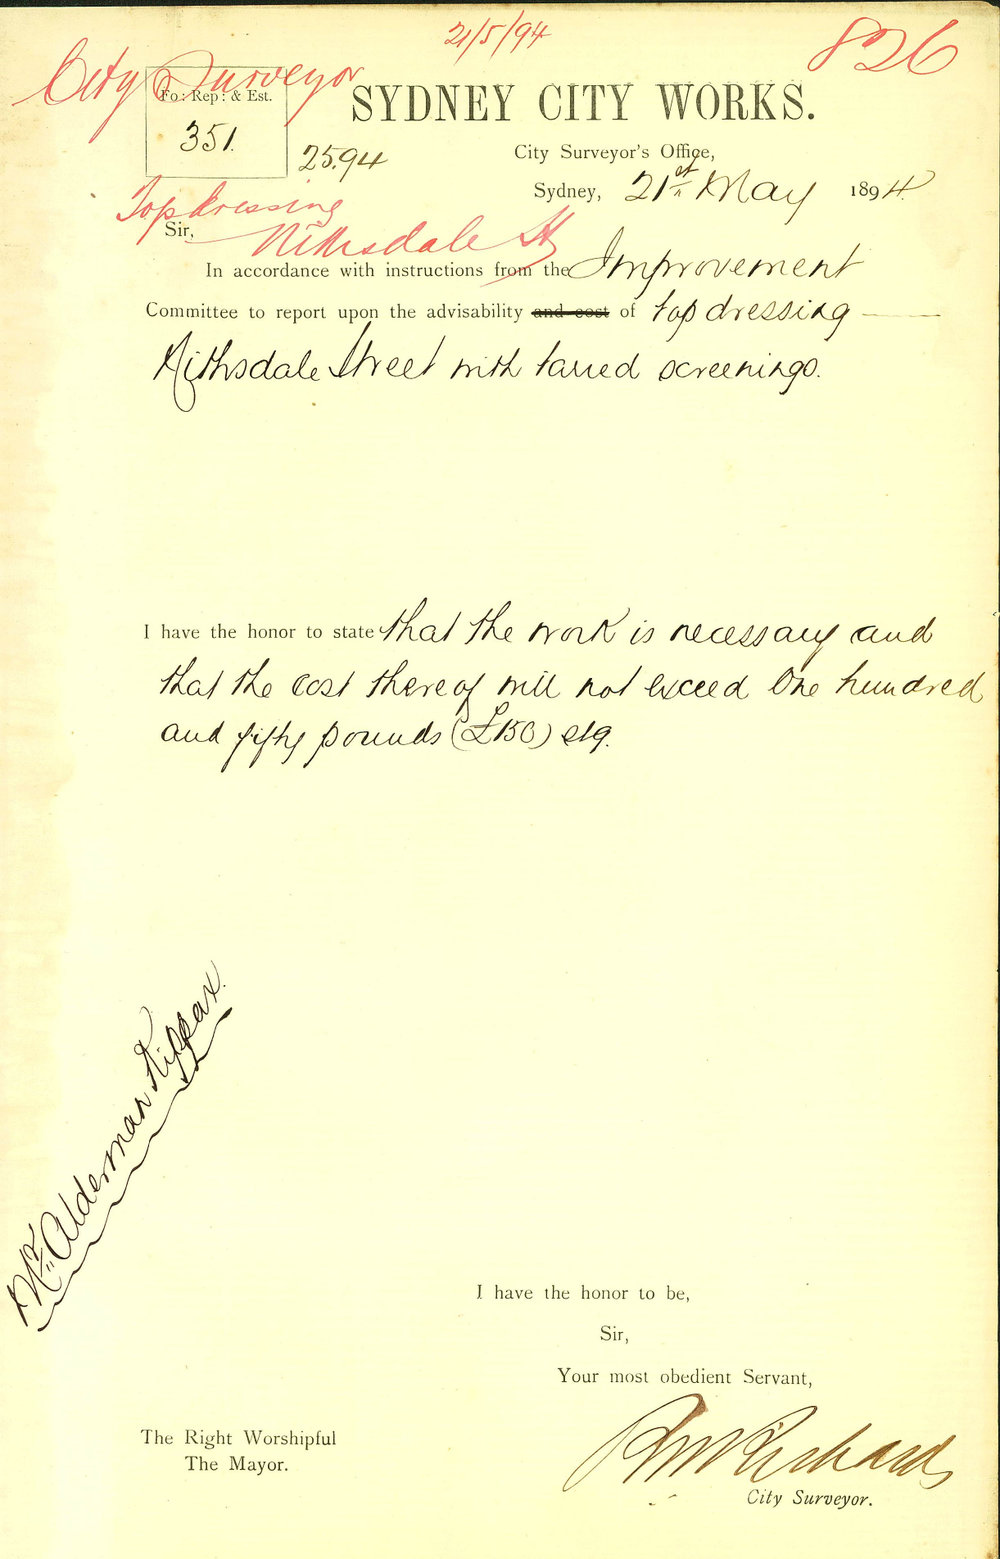 21/5/94
826
City Surveyor
Fo: Rep: & Est.
351.
25.94
SYDNEY CITY WORKS.
City Surveyor's Office,
Sydney, 21st May 1894.
Top dressing
Nithsdale St
Sir,
In accordance with instructions from the Improvement
Committee to report upon the advisability and cost of top dressing
Nithsdale Street with tarred screenings.
I have the honor to state that the work is necessary and
that the cost thereof will not exceed One hundred
and fifty pounds (£150) stg.
Mr. Alderman Kippax.
I have the honor to be,
Sir,
Your most obedient Servant,
Richards
City Surveyor.
The Right Worshipful
The Mayor.